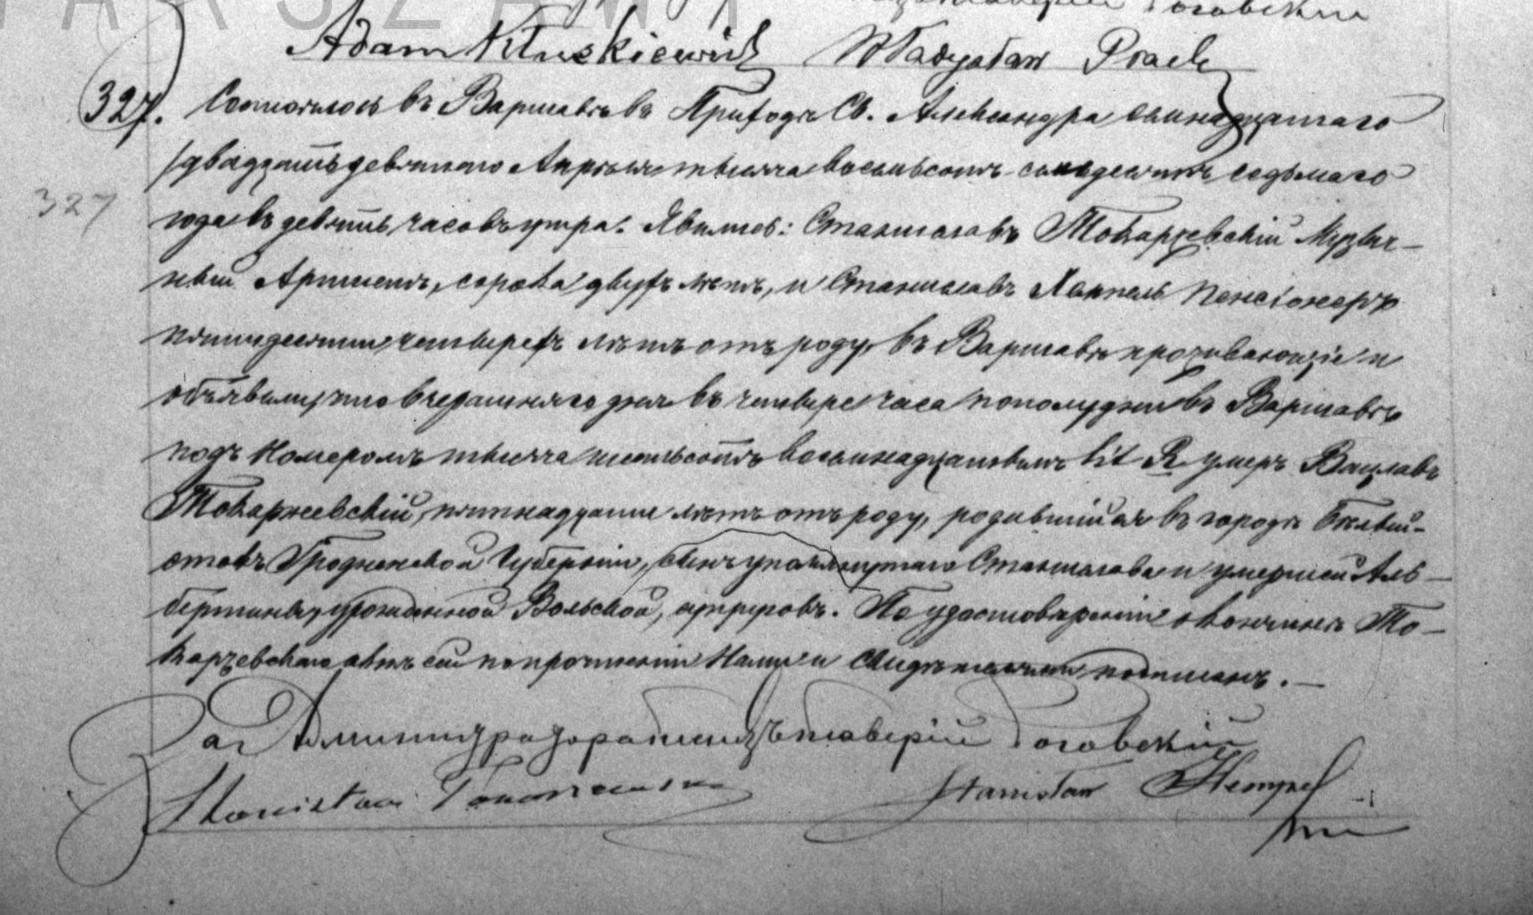 PARSZAWI
Роговскій
Adam Kluskiewicz Władysław Ptach
327. Состоялось въ Варшавѣ въ Приходѣ Св. Александра семнадцатаго
327
/двадцать девятаго Апрѣля тысяча восемьсотъ семьдесятъ седьмаго
года въ девять часовъ утра. Явились: Станиславъ Токаржевскій Музыкаль-
ный Артистъ, сорока двухъ лѣтъ, и Станиславъ Хемпель Пенсіонеръ
пятидесяти четырехъ лѣтъ отъ роду, въ Варшавѣ проживающіе и
объявили, что вчерашняго дня въ четыре часа пополудни въ Варшавѣ
подъ Номеромъ тысяча шестьсотъ восьмнадцатымъ lit R умеръ Вацлавъ
Токаржевскій, пятнадцати лѣтъ отъ роду, родившійся въ городѣ Бѣлый-
стокъ Гродненской Губерніи, сынъ упомянутаго Станислава и умершей Аль-
бертины, урожденной Вольской, супруговъ. По удостовѣреніи о кончинѣ То-
каржевскаго, актъ сей по прочтеніи Нами и Свидѣтелями подписанъ. —
За Администратора Роговскій
Stanisław Tokarzewski Stanisław Hempel